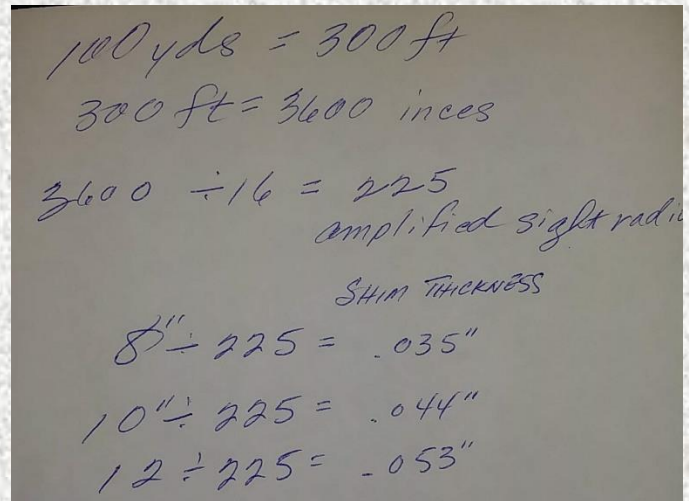 100 yds = 300 ft
300 ft = 3600 inces
3600 ÷ 16 = 225
amplified sight radi
SHIM THICKNESS
8" ÷ 225 = .035"
10" ÷ 225 = .044"
12 ÷ 225 = .053"